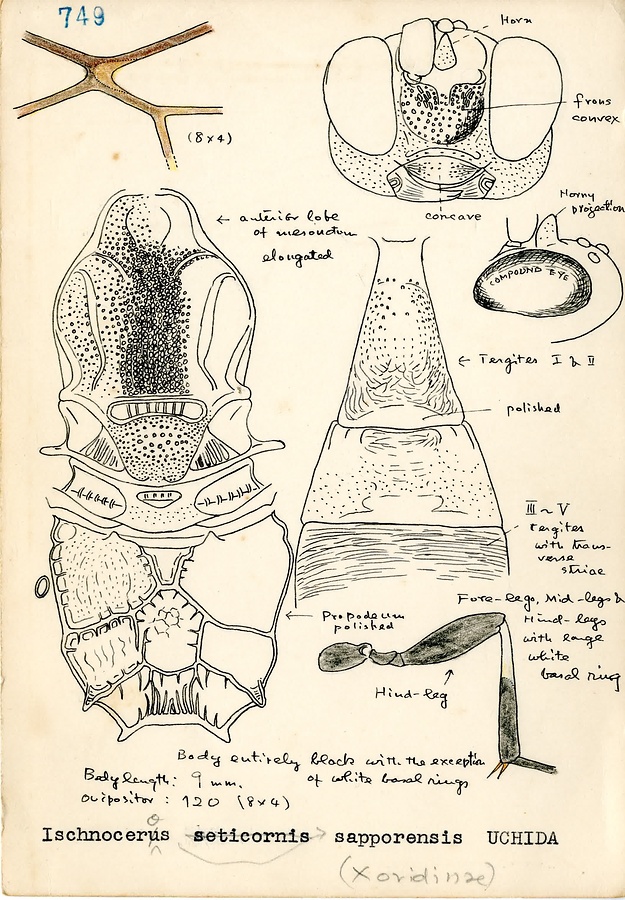 749
Horn
(8x4)
frons
convex
Horny
projection
← anterior lobe
of mesonotum
elongated
concave
COMPOUND EYE
← Tergites I & II
polished
III ~ V
Tergites
with trans-
verse
striae
Fore-legs, Mid-legs &
Hind-legs
with large
white
basal ring
← Propodeum
polished
Hind-leg
Body entirely black with the exception
of white basal rings
Body length: 9 mm.
Ovipositor: 120 (8x4)
Ischnocerus seticornis sapporensis UCHIDA
(Xoridinae)